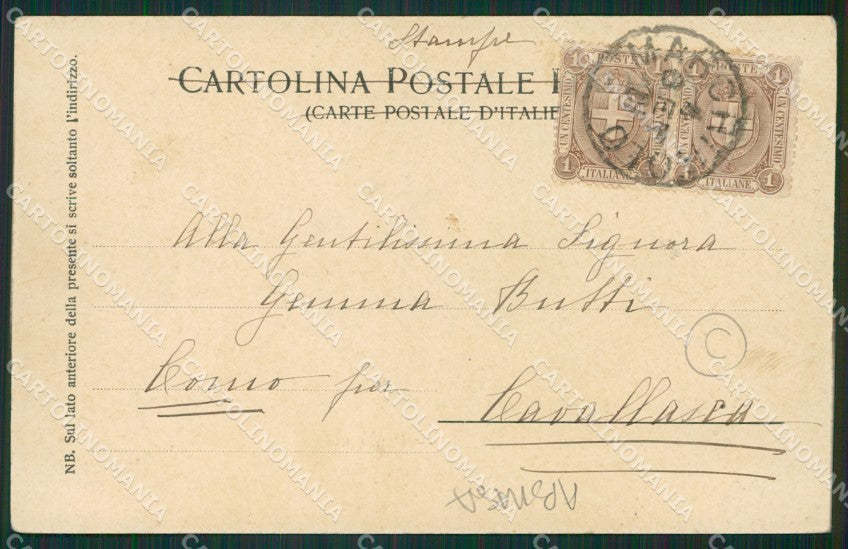 Stampe
CARTOLINA POSTALE I
(CARTE POSTALE D'ITALIE
NB. Sul lato anteriore della presente si scrive soltanto l'indirizzo.
POSTE
1 1
UN CENTESIMO
1 ITALIANE
1
UN CENTESIMO
ITALIANE 1
Alla Gentilissima Signora
Gemma Butti
Como per
Cavallasca
C
CARTOLINOMANIA